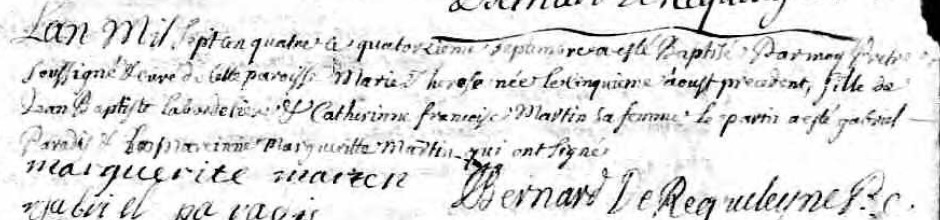 Lan Mil Sept cen quatre le quatorzieme Septambre a esté Baptisé Par moy Pretre
soussigné & curé de cette paroisse Marie Therese née le cinquieme aoust precedent, fille de
Jean Baptiste labordeliere & Catherinne francoise Martin sa femme le partin a esté gabriel
Paradis & la Mareinne Margueritte Martin qui ont signé
marguerite marten
gabriel paradis
Bernard De Requeleyne P. c.